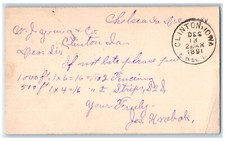 Chelsea Ia Dec
W. J. Young & Co
Clinton Ia
Dear Sir
If not late please put
1000 ft 1x6=16 "№2 Fencing
500 ft 1x4=16 Strips
Your Truly
Jos Hrabak
CLINTON, IOWA
DEC
1891